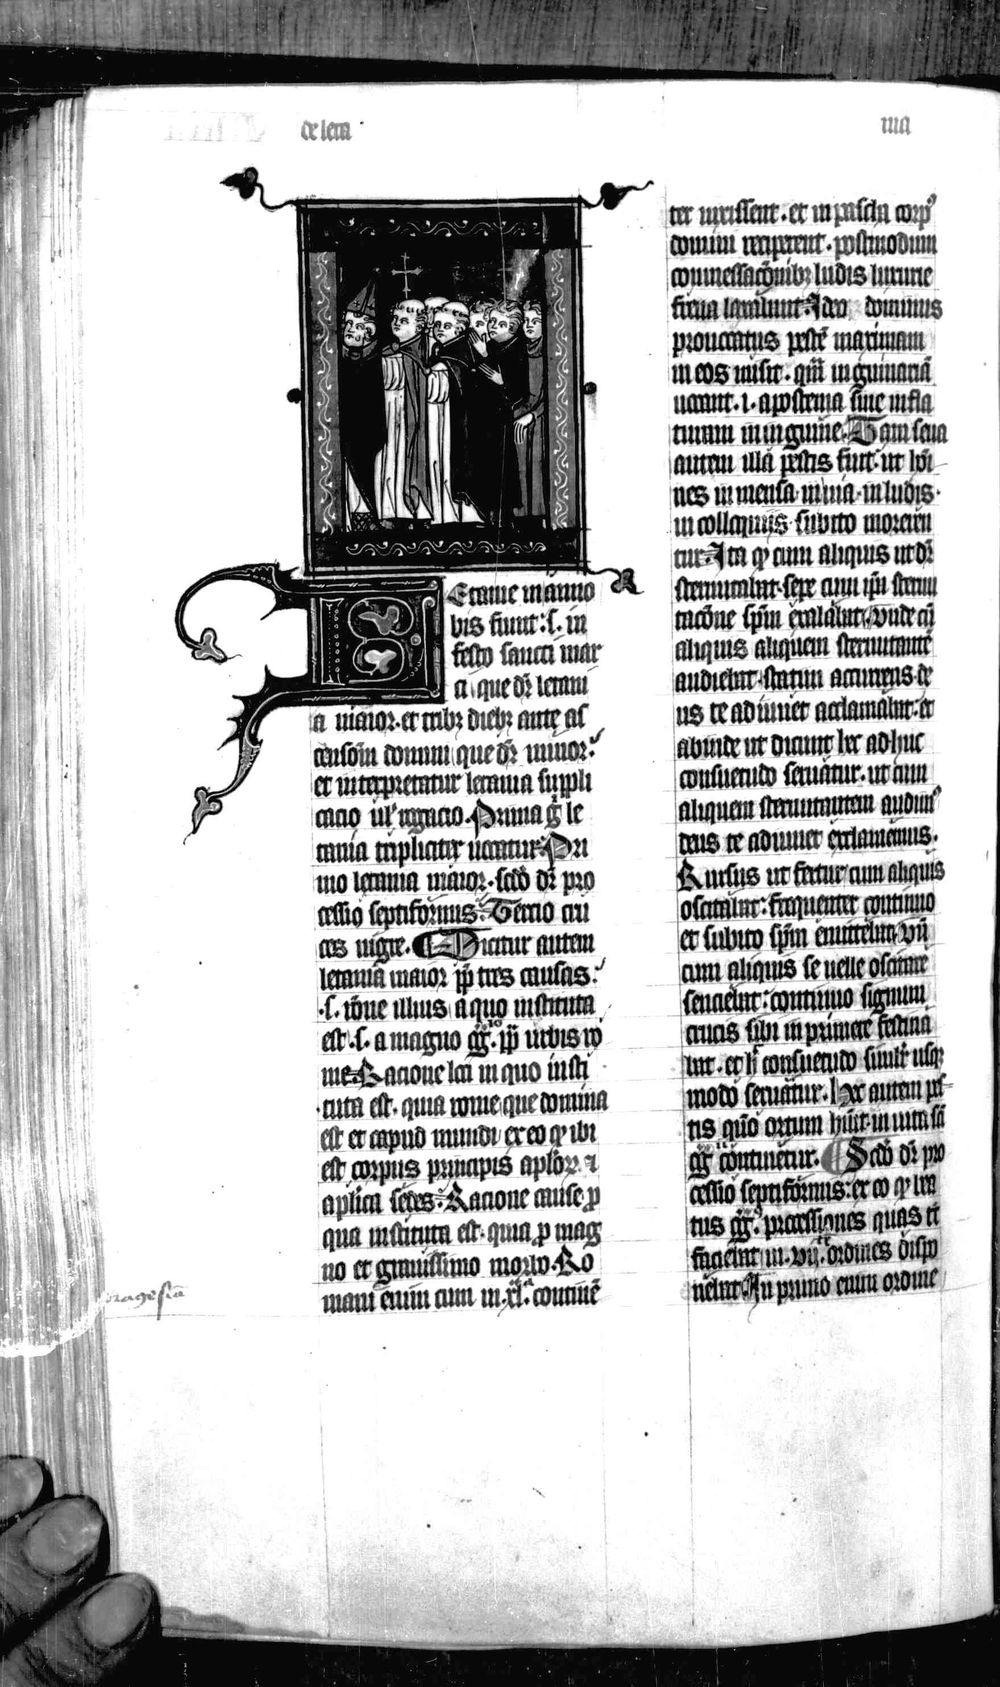 de leta
nia
Letanie in anno
bis fiunt .s. in
festo sancti mar
ci que dr̄ letani
a maior. et tribꝫ diebꝫ ante as
censōm domini que dr̄ minor.
et interpretatur letania suppli
cacio ul' rogacio. Prima g̊ le
tania tripliciter uocatur. Pri
mo letania maior. scd̄o dr̄ pro
cessio septiformis. Tercio cru
ces nigre. Dicitur autem
letania maior ꝓp̄ tres causas.
.s. rōne illius a quo instituta
est .s. a magno gg̊.io pp̄ urbis ro
me. Racione loci in quo insti
tuta est. quia rome que domina
est et capud mundi ex eo ꝙ ibi
est corpus principis aplōꝝ. ⁊
aplica sedes. Racione cause ꝓ
qua instituta est. quia ꝓ mag
no et grauissimo morbo. Ro
mani enim cum in .xl.a continē
ragesīa
ter uixissent. et in pascha corpꝰ
domini reciperent. postmodum
commessacōnibꝫ ludis luxurie
frena laxabunt. Ideo dominus
prouocatus pestē maximam
in eos misit. quā inguinariā
uocant .i. apostema siue infla
turam in inguine. Tam seua
autem illa pestis fuit. ut hōi
nes in mensa in uia in ludis.
in colloquijs subito morerēn
tur. Ita ꝙ cum aliquis ut dr̄
sternutabat. sepe cum ip̄a sternu
tacōne spm̄ exalabat. Vnde cū
aliquis aliquem sternutantē
audiebat. statim accurrens de
us te adiuuet acclamabat. et
abinde ut dicunt hec adhuc
consuetudo seruatur. ut cum
aliquem sternutantem audimꝰ
deus te adiuuet exclamemus.
Rursus ut fertur cum aliquis
oscitabat: frequenter continuo
et subito spm̄ emittebat. Vn̄
cum aliquis se uelle oscitare
senciebat: continuo signum
crucis sibi in primere festina
bat. et h̄ consuetudo simil'r usqꝫ
modo seruatur. Hec autem pes
tis quō ortum hūit in uita sc̄i
gg̊ continetur. Scd̄o dr̄ pro
cessio septiformis: ex eo ꝙ bea
tus gg̊ꝰ processiones quas tc̄
faciebat in .vij.tē ordines dispo
nebat. In primo enim ordine